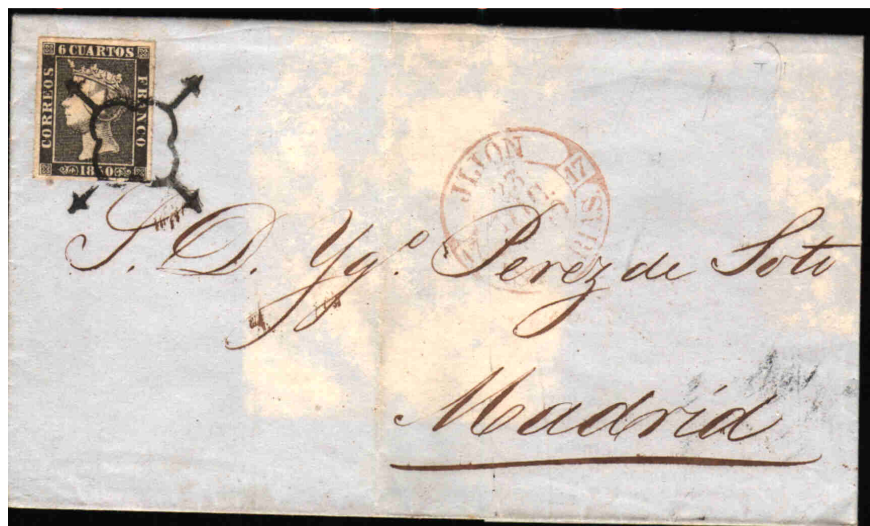 6 CUARTOS
CORREOS
FRANCO
1850
JIJON
17
23
S. D. Ygº. Perez de Soto
Madrid